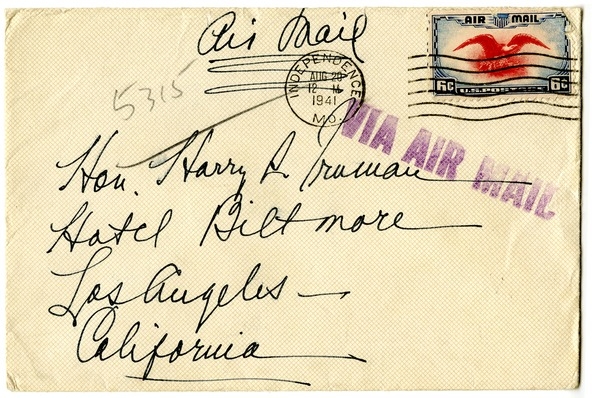 Air Mail
AIR MAIL
6c 6c
U.S. POSTAGE
5315
INDEPENDENCE
AUG 20
12 M
1941
MO.
VIA AIR MAIL
Hon. Harry S. Truman
Hotel Biltmore
Los Angeles
California